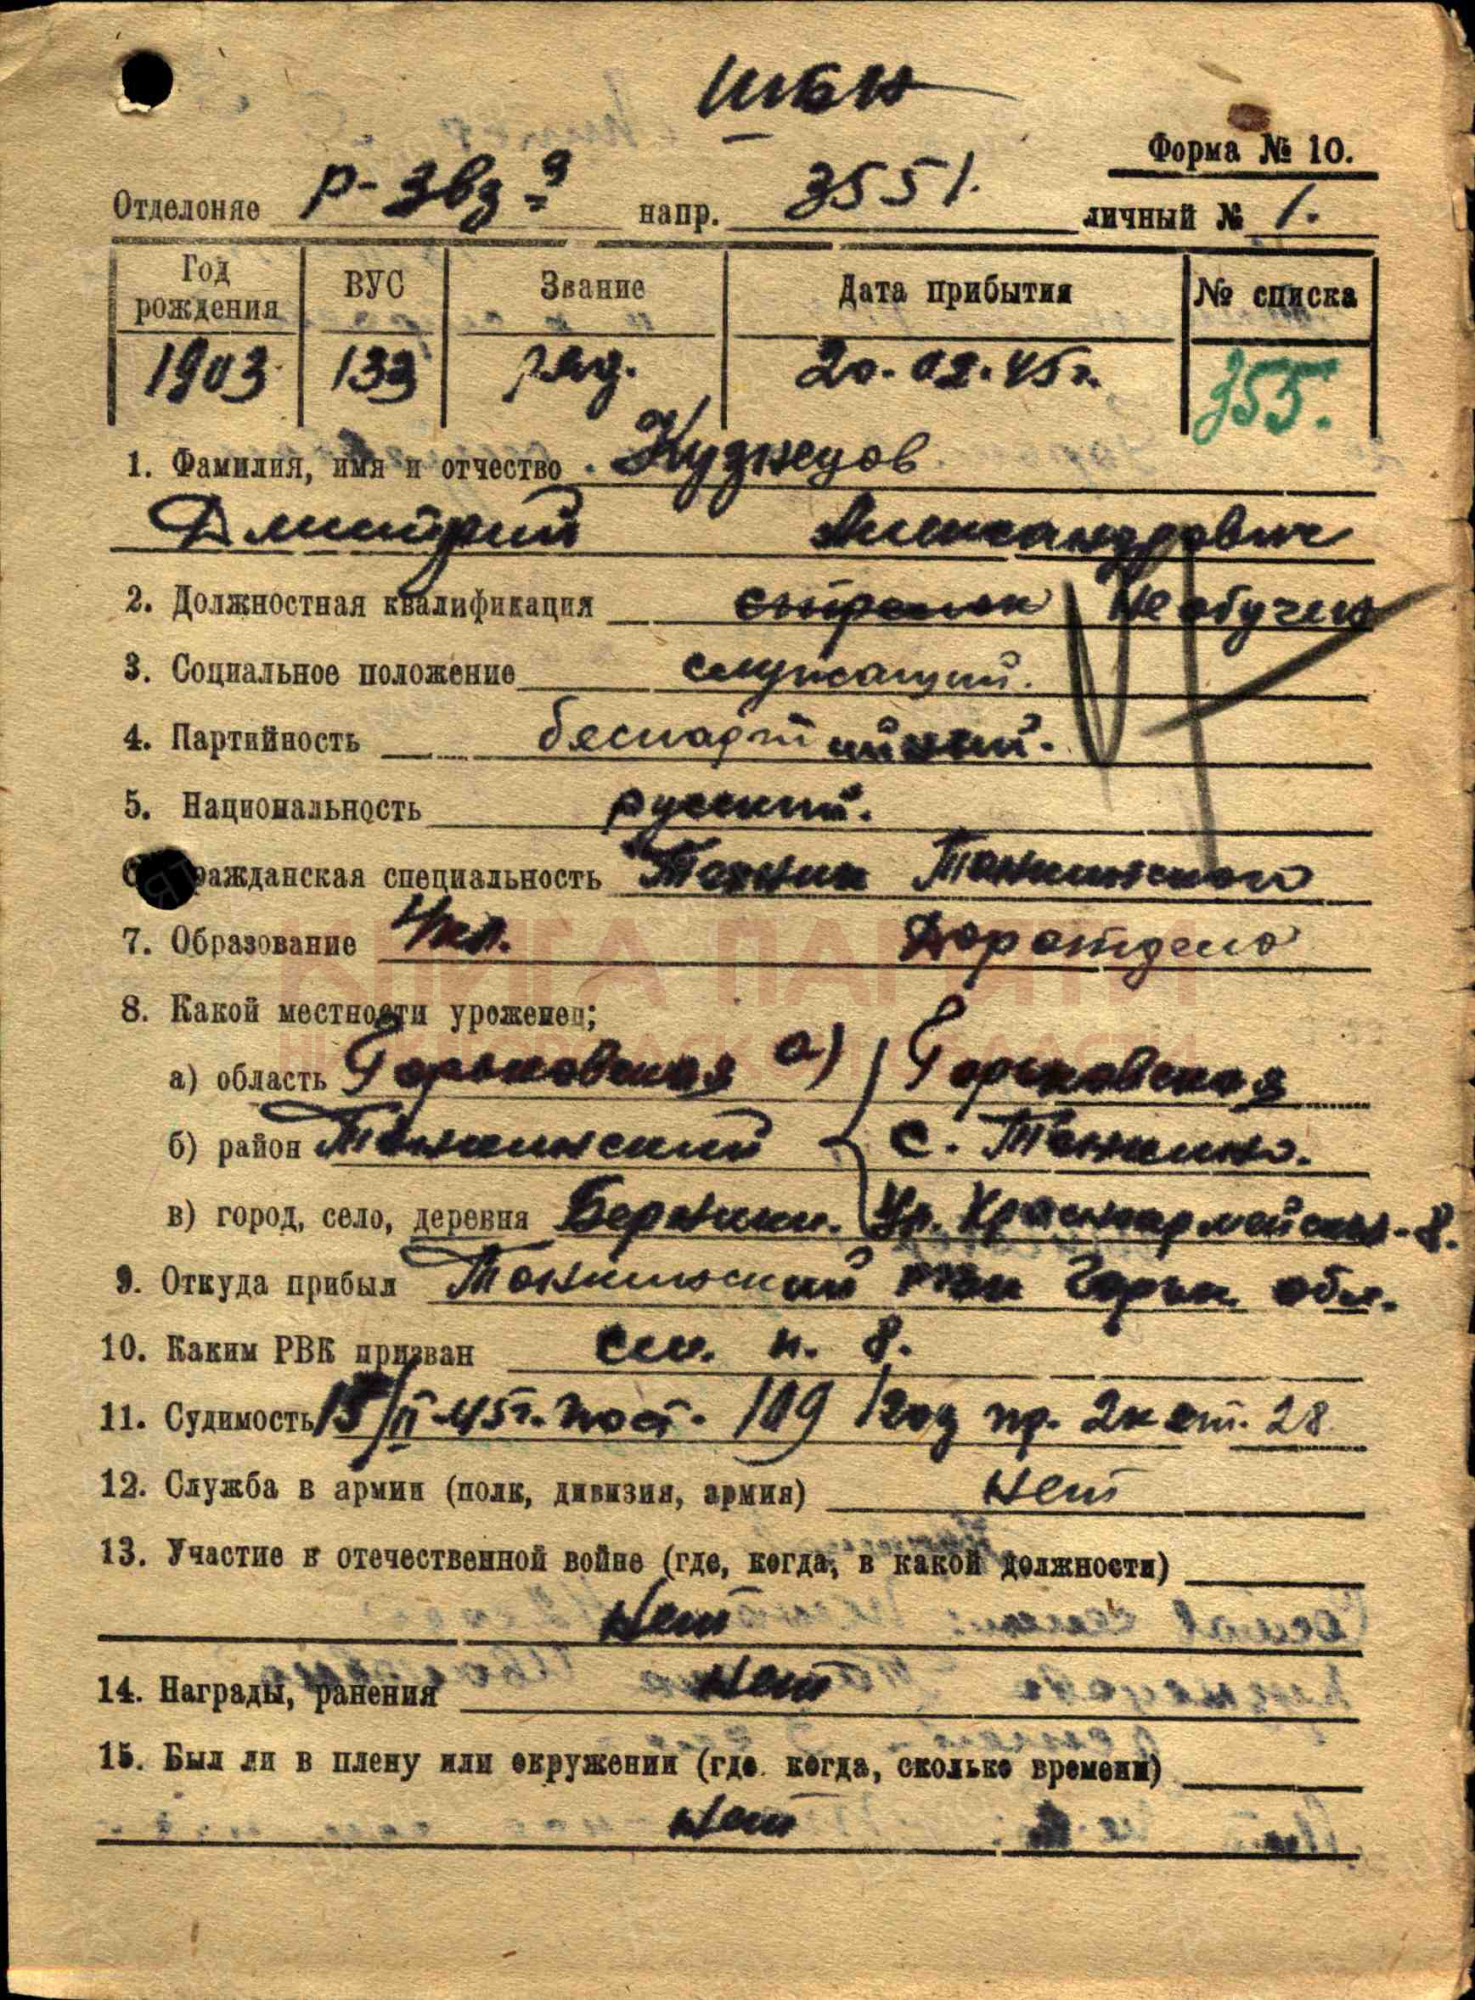 Форма № 10.
Отделоняе напр. 3551. личный № 1.
Год рождения ВУС Звание Дата прибытия № списка
1903 133 ряд. 20.02.45г. 355.
1. Фамилия, имя и отчество Кузнецов
Дмитрий Александрович
2. Должностная квалификация стрелок Необучен
3. Социальное положение служащий.
4. Партийность беспартийный.
5. Национальность русский.
6. Гражданская специальность Техник Тонкинского
7. Образование 4 кл. Доротдела
КНИГА ПАМЯТИ
8. Какой местности уроженец;
НИЖЕГОРОДСКОЙ ОБЛАСТИ
а) область Горьковская а) Горьковская
б) район Тонкинский с. Тонкино.
в) город, село, деревня Берники. Ул. Красноармейская-8.
9. Откуда прибыл Тонкинский Горьк. обл.
10. Каким РВК призван см. п. 8.
11. Судимость 15/II-45г. пост. 109 1 год пр. 2 к ст. 28
12. Служба в армии (полк, дивизия, армия) Нет
13. Участие в отечественной войне (где, когда, в какой должности)
Нет
14. Награды, ранения Нет
15. Был ли в плену или окружении (где когда, сколько времени)
Нет